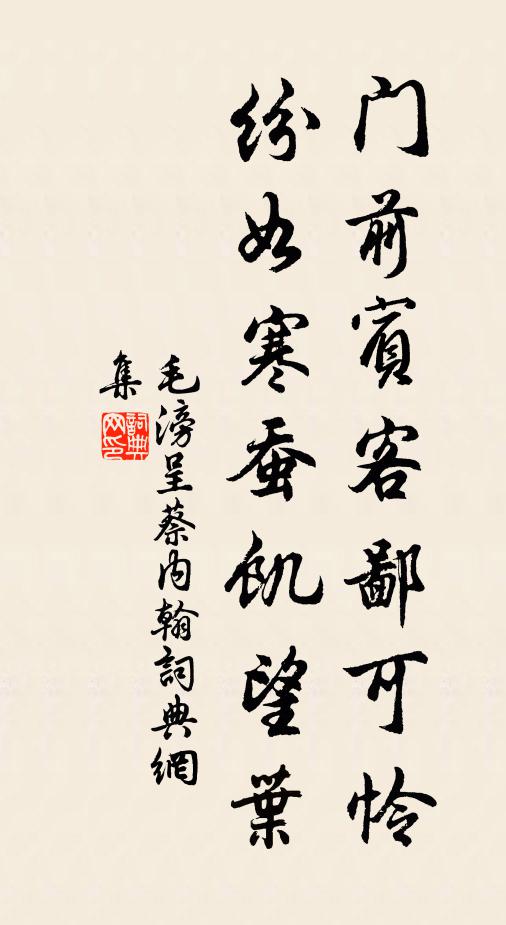 门前賓客鄙可怜
纷如寒蚕饥望葉
毛滂呈蔡内翰詞典網
集
詞典网印